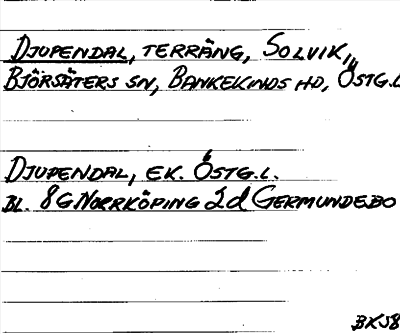 DJUPENDAL, TERRÄNG, SOLVIK,
BJÖRSÄTERS SN, BANKEKINDS HD, ÖSTG.L
DJUPENDAL, EK. ÖSTG.L.
BL. 8G NORRKÖPING 2d GERMUNDEBO